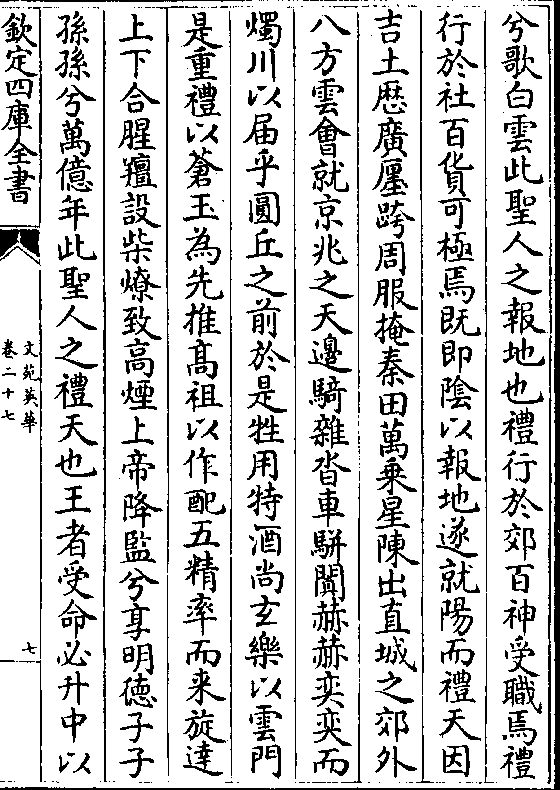 兮歌白雲此聖人之報地也禮行於郊百神受職焉禮
行於社百貨可極焉既即陰以報地遂就陽而禮天因
吉土厯廣廛跨周服掩秦田萬乗星陳出直城之郊外
八方雲會就京兆之天邊騎雜沓車駢闐赫赫奕奕而
燭川以届乎圜丘之前於是牲用特酒尚玄樂以雲門
是重禮以蒼玉為先推髙祖以作配五精率而来旋達
上下合腥羶設柴燎致高煙上帝降監兮享明徳子子
孫孫兮萬億年此聖人之禮天也王者受命必升中以
欽定四庫全書
文苑英華
卷二十七
七